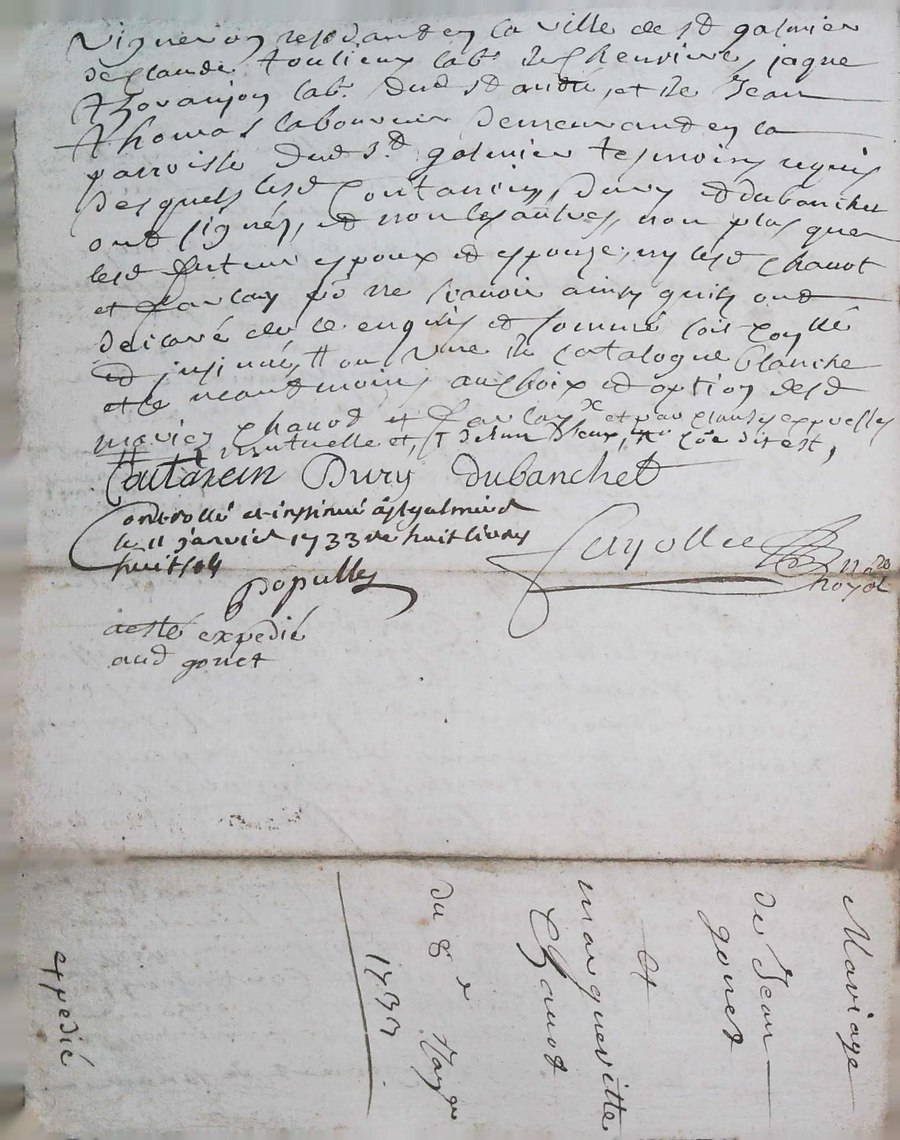 Vigneron residand en la ville de sd galmier
de Claude toulieux labr de Chevriere, jaque
thovanjon labr dud st andré, et de Jean
thomas laboureur demeurand en la
parroisse dud sd galmier tesmoins requis
desquels lesd Contarein, Dury et dubanchet
ond signés, et non les autres, non plus que
lesd futeur espoux et espouze, ny lesd Chanot
et farlay pō ne scavoir ainsy quils ond
declaré de ce enquis et sommé sois
et insinué, # ou une de catalogne blanche
et ce neantmoins au choix et option desd
mariez Chanod et farlay x et par clauses expresses
mutuelle et, dit est,
Contarein Dury dubanchet
Controllé et insinué à st galmier
le 11 janvier 1733 re huit livres
huit sols
populle
fayolle
nore
royal
a esté expedié
aud gonet
Mariage
de Jean
gonet
et
margueritte
Chanod
du 8e
1733
expedié